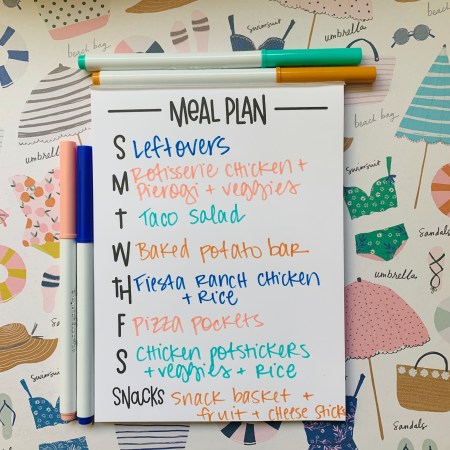 MEAL PLAN
S Leftovers
M Rotisserie chicken +
Pierogi + veggies
T Taco Salad
W Baked potato bar
TH Fiesta Ranch Chicken
+ Rice
F Pizza pockets
S Chicken potstickers
+ veggies + Rice
SNACKS Snack basket +
fruit + cheese sticks
beach bag
Swimsuit
umbrella
beach bag
Swimsuit
umbrella
Sandals
Swimsuit
Sandals